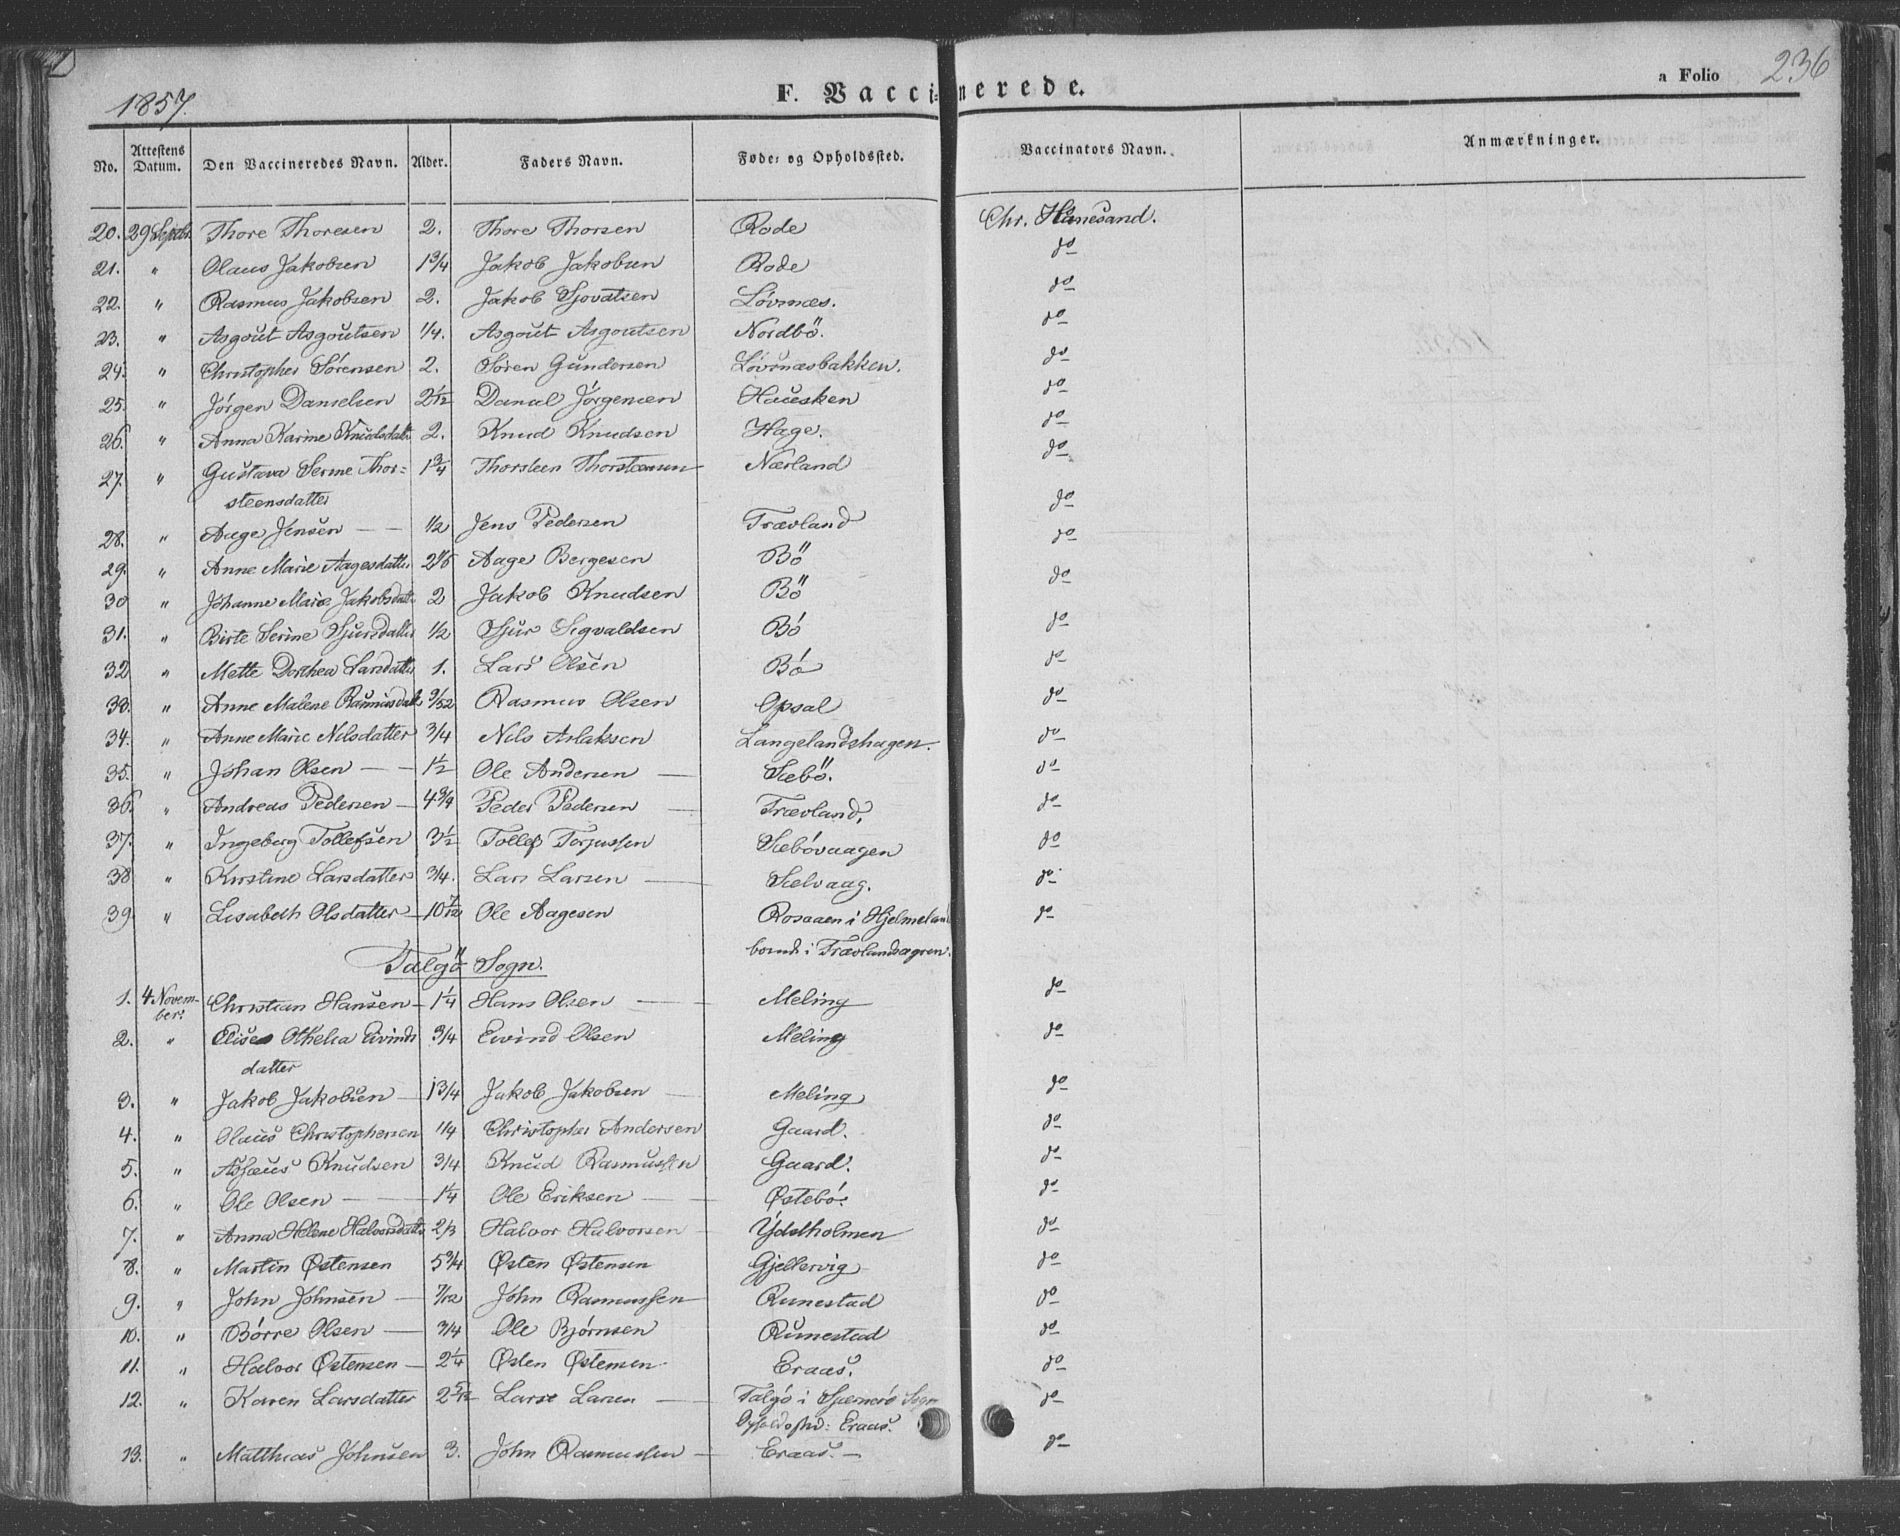 1857.
F. Vaccinerede.
a Folio 236
No. Attestens Datum. Den Vaccineredes Navn. Alder. Faders Navn. Føde- og Opholdssted. Vaccinators Navn. Anmærkninger.
20. 29 Septbr. Thore Thoresen 2. Thore Thorsen Rode Chr. Hunesand.
21. " Olaus Jakobsen 1 3/4 Jakob Jakobsen Rode do
22. " Rasmus Jakobsen 2. Jakob Sjovatsen Løvnæs. do
23. " Asgout Asgoutsen 1/4. Asgout Asgoutsen Nordbö. do
24. " Christopher Sørensen 2. Søren Gundersen Løvnæsbakken. do
25. " Jörgen Danielsen 2 1/12 Daniel Jörgensen Hauesken do
26. " Anna Karine Knudsdatter 2. Knud Knudsen Hage. do
27. " Gustava Serine Thor- 1 3/4 Thorsteen Thorstensen Nærland do
steensdatter
28. " Aage Jensen 1/2 Jens Pedersen Trævland do
29. " Anne Marie Aagesdatter 2 1/6 Aage Bergesen Bö do
30 " Johanne Marie Jakobsdatter 2 Jakob Knudsen Bö do
31. " Birte Serine Sjursdatter 1/2 Sjur Segvaldsen Bö do
32 " Mette Dorthea Larsdatter 1. Lars Olsen Bö do
33. " Anne Malene Rasmusdatt 9/52 Rasmus Olsen Opsal do
34. " Anne Marie Nilsdatter 3/4 Nils Aslaksen Langelandshagen. do
35. " Johan Olsen 1 1/2 Ole Andersen Sæbö. do
36. " Andreas Pedersen 4 3/4 Peder Pedersen Trævland. do
37. " Ingeborg Tollefsen 3 1/2 Tollef Torjussen Sæbövaagen do
38 " Kirstine Larsdatter 3/4. Lars Larsen Selvaag. do
39. " Lisabeth Olsdatter 10 7/12 Ole Aagesen Rosaaen i Hjelmeland do
boende i Trævlandsagren.
Talgö Sogn.
1. 4 Novem- Christian Hansen 1 1/4 Hans Olsen Meling do
ber.
2. " Elise Othelia Eivinds 3/4 Eivind Olsen Meling do
datter
3. " Jakob Jakobsen 1 3/4 Jakob Jakobsen Meling do
4. " Olaus Christophersen 1/4 Christopher Andersen Gaard. do
5. " Asseus Knudsen 3/4 Knud Rasmussen Gaard. do
6. " Ole Olsen 1 1/4 Ole Eriksen Østebö. do
7. " Anna Helene Halvorsdatter 2/3 Halvor Halvorsen Ydstholmen do
8. " Martin Østensen 5 3/4 Østen Østensen Gjellervig do
9. " John Johnsen 7/12 John Rasmussen Runestad do
10. " Börre Olsen 3/4 Ole Bjørnsen Runestad do
11. " Halvor Østensen 2 1/4 Østen Østensen Eraas. do
12. " Karen Larsdatter 2 5/12 Larse Larsen Talgö i Sjernerö Sogn do
Opholdssted: Eraas.
13. " Matthias Johnsen 3. John Rasmussen Eraas. do